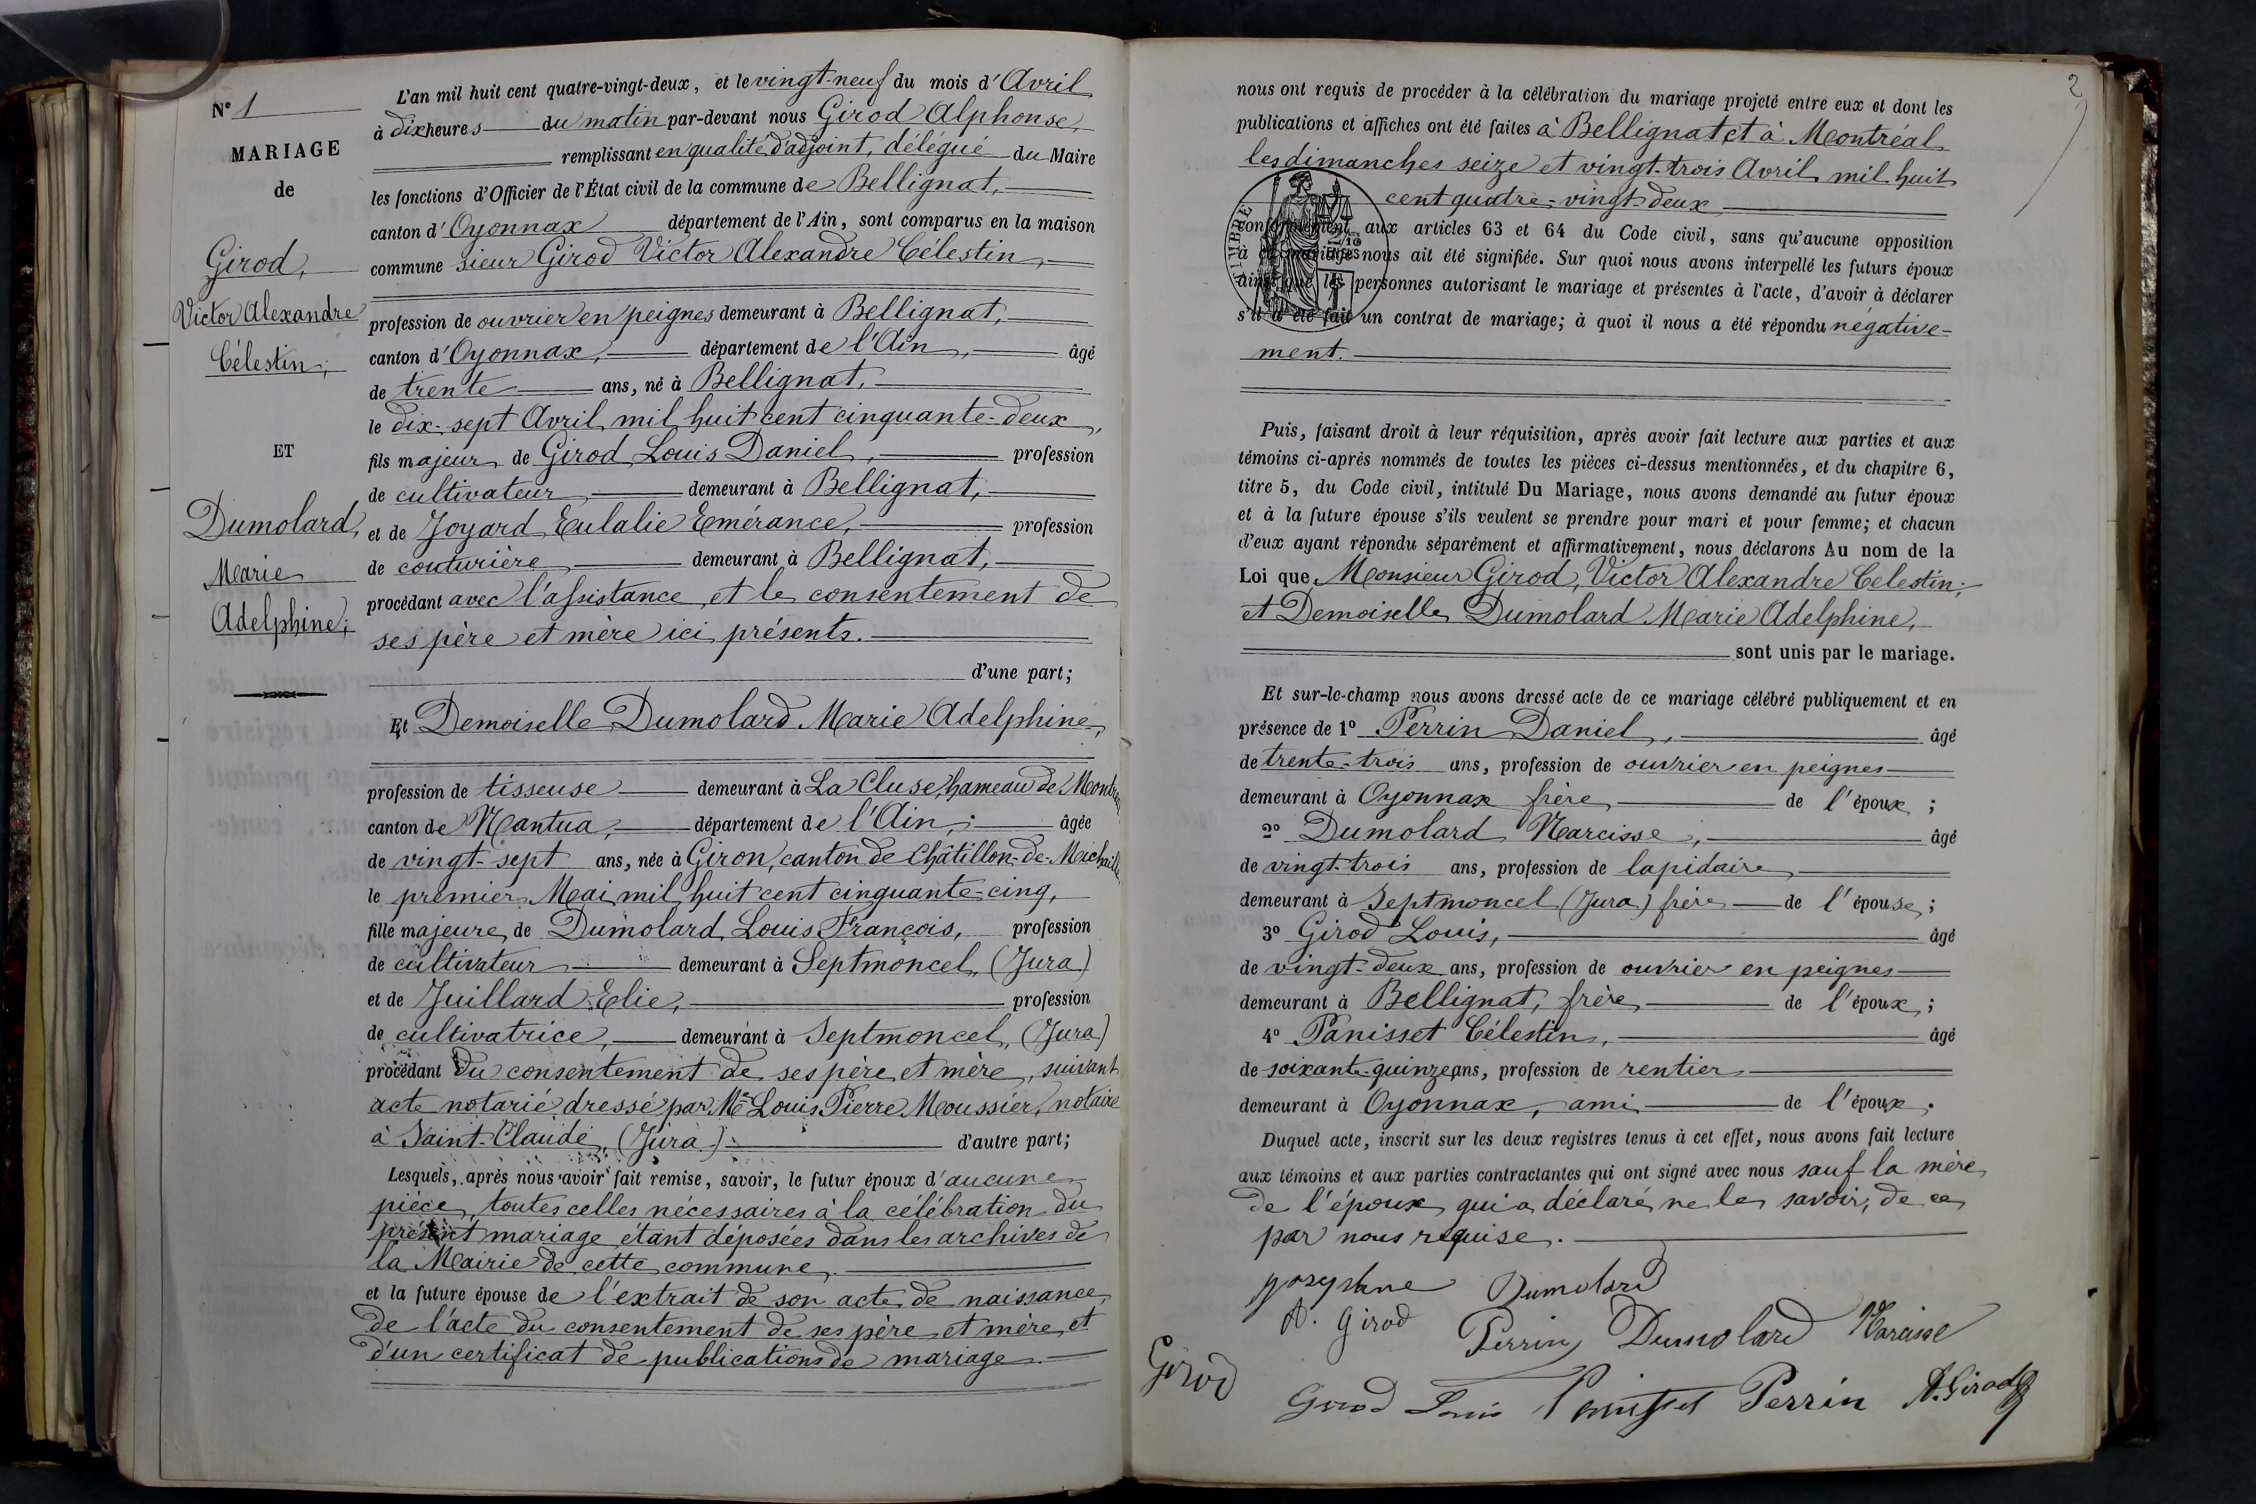 N° 1
MARIAGE
de
Girod,
Victor Alexandre
Célestin;
ET
Dumolard,
Marie
Adelphine;
L'an mil huit cent quatre-vingt-deux, et le vingt-neuf du mois d'Avril
à dix heures du matin par-devant nous Girod Alphonse,
remplissant en qualité d'adjoint, délégué du Maire
les fonctions d'Officier de l'État civil de la commune de Bellignat,
canton d'Oyonnax département de l'Ain, sont comparus en la maison
commune sieur Girod Victor Alexandre Célestin,
profession de ouvrier en peignes demeurant à Bellignat,
canton d'Oyonnax, département de l'Ain, âgé
de trente ans, né à Bellignat,
le dix-sept Avril mil huit cent cinquante-deux,
fils majeur de Girod Louis Daniel, profession
de cultivateur demeurant à Bellignat,
et de Joyard Eulalie Emérance, profession
de couturière demeurant à Bellignat,
procédant avec l'assistance et le consentement de
ses père et mère ici présents.
d'une part;
Et Demoiselle Dumolard Marie Adelphine,
profession de tisseuse demeurant à La Cluse, hameau de
canton de Nantua, département de l'Ain, âgée
de vingt-sept ans, née à Giron, canton de Châtillon-de-Michaille
le premier Mai mil huit cent cinquante-cinq,
fille majeure de Dumolard Louis François, profession
de cultivateur demeurant à Septmoncel, (Jura)
et de Juillard Elie, profession
de cultivatrice, demeurant à Septmoncel, (Jura)
procédant du consentement de ses père et mère, suivant
acte notarié dressé par Me Louis Pierre Moussier, notaire
à Saint-Claude, (Jura). d'autre part;
Lesquels, après nous avoir fait remise, savoir, le futur époux d'aucune
pièce, toutes celles nécessaires à la célébration du
présent mariage étant déposées dans les archives de
la Mairie de cette commune,
et la future épouse de l'extrait de son acte de naissance,
de l'acte du consentement de ses père et mère, et
d'un certificat de publications de mariage.
2
nous ont requis de procéder à la célébration du mariage projeté entre eux et dont les
publications et affiches ont été faites à Bellignat et à Montréal
les dimanches seize et vingt-trois Avril mil huit
cent quatre-vingt deux
conformément aux articles 63 et 64 du Code civil, sans qu'aucune opposition
à ce mariage nous ait été signifiée. Sur quoi nous avons interpellé les futurs époux
ainsi que les personnes autorisant le mariage et présentes à l'acte, d'avoir à déclarer
s'il a été fait un contrat de mariage; à quoi il nous a été répondu négative-
ment.
Puis, faisant droit à leur réquisition, après avoir fait lecture aux parties et aux
témoins ci-après nommés de toutes les pièces ci-dessus mentionnées, et du chapitre 6,
titre 5, du Code civil, intitulé Du Mariage, nous avons demandé au futur époux
et à la future épouse s'ils veulent se prendre pour mari et pour femme; et chacun
d'eux ayant répondu séparément et affirmativement, nous déclarons Au nom de la
Loi que Monsieur Girod, Victor Alexandre Celestin;
et Demoiselle Dumolard Marie Adelphine,
sont unis par le mariage.
Et sur-le-champ nous avons dressé acte de ce mariage célébré publiquement et en
présence de 1° Perrin Daniel, âgé
de trente-trois ans, profession de ouvrier en peignes
demeurant à Oyonnax frère de l'époux;
2° Dumolard Narcisse, âgé
de vingt-trois ans, profession de lapidaire
demeurant à Septmoncel (Jura) frère de l'épouse;
3° Girod Louis, âgé
de vingt-deux ans, profession de ouvrier en peignes
demeurant à Bellignat, frère de l'époux;
4° Panisset Célestin, âgé
de soixante-quinze ans, profession de rentier
demeurant à Oyonnax, ami de l'époux.
Duquel acte, inscrit sur les deux registres tenus à cet effet, nous avons fait lecture
aux témoins et aux parties contractantes qui ont signé avec nous sauf la mère
de l'époux qui a déclaré ne le savoir, de ce
par nous requise.
Dumolard
Girod
Perrin Dumolard Narcisse
Girod
Girod Louis Panisset Perrin A. Girod